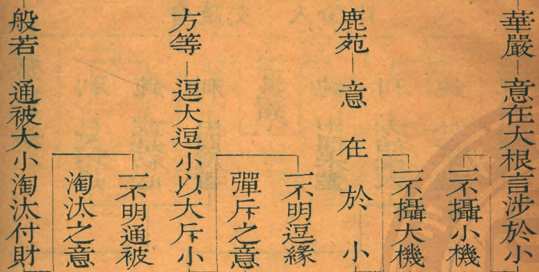 華嚴 意在大根言涉於小
一不攝小機
一不攝大機
鹿苑 意在於小
一不明逗緣
彈斥之意
方等 逗大逗小以大斥小
一不明通被
淘汰之意
般若 通被大小淘汰付財